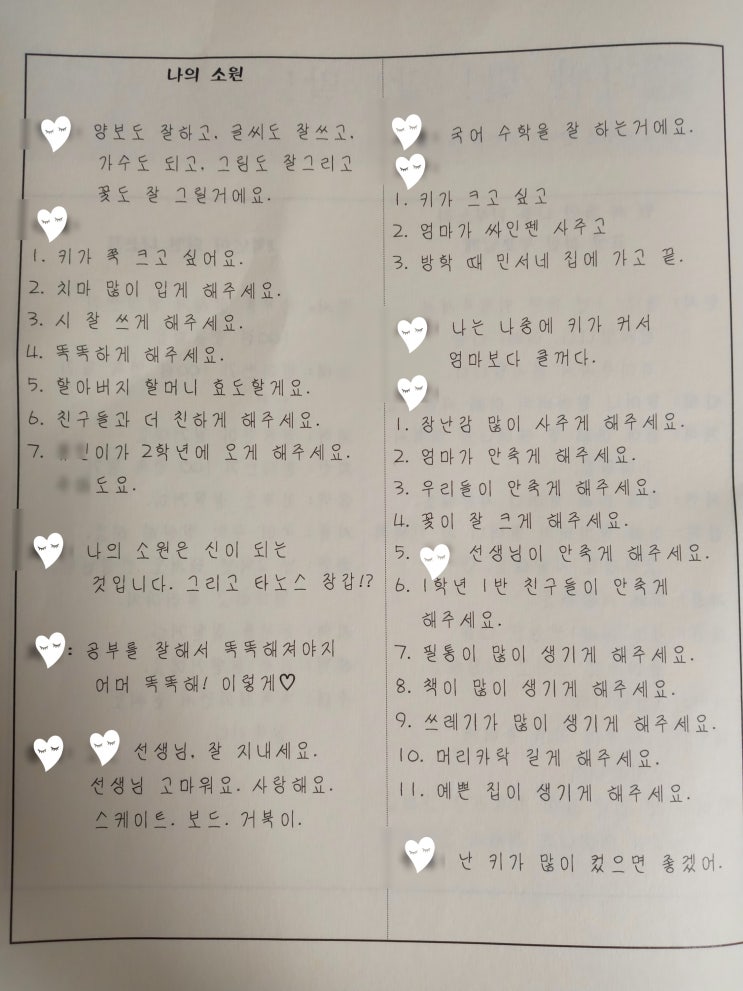 나의 소원
양보도 잘하고, 글씨도 잘쓰고,
가수도 되고, 그림도 잘그리고
꽃도 잘 그릴거에요.
1. 키가 쭉 크고 싶어요.
2. 치마 많이 입게 해주세요.
3. 시 잘 쓰게 해주세요.
4. 똑똑하게 해주세요.
5. 할아버지 할머니 효도할게요.
6. 친구들과 더 친하게 해주세요.
7. 이가 2학년에 오게 해주세요.
도요.
나의 소원은 신이 되는
것입니다. 그리고 타노스 장갑!?
: 공부를 잘해서 똑똑해져야지
어머 똑똑해! 이렇게♡
선생님, 잘 지내세요.
선생님 고마워요. 사랑해요.
스케이트. 보드. 거북이.
국어 수학을 잘 하는거에요.
1. 키가 크고 싶고
2. 엄마가 싸인펜 사주고
3. 방학 때 민서네 집에 가고 끝.
나는 나중에 키가 커서
엄마보다 클꺼다.
1. 장난감 많이 사주게 해주세요.
2. 엄마가 안죽게 해주세요.
3. 우리들이 안죽게 해주세요.
4. 꽃이 잘 크게 해주세요.
5. 선생님이 안죽게 해주세요.
6. 1학년 1반 친구들이 안죽게
해주세요.
7. 필통이 많이 생기게 해주세요.
8. 책이 많이 생기게 해주세요.
9. 쓰레기가 많이 생기게 해주세요.
10. 머리카락 길게 해주세요.
11. 예쁜 집이 생기게 해주세요.
난 키가 많이 컸으면 좋겠어.